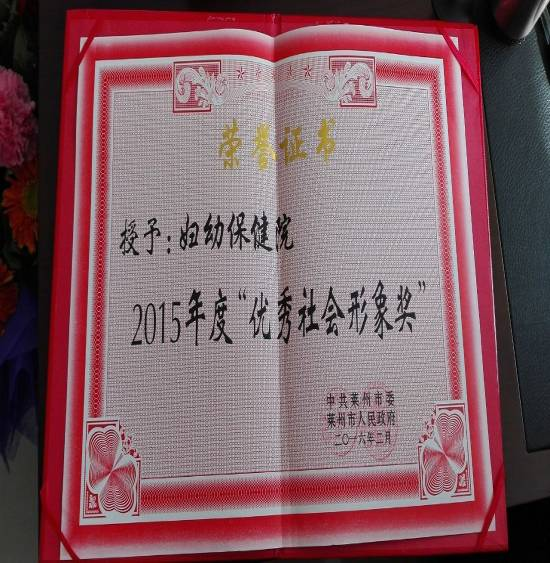 荣誉证书
授予：妇幼保健院
2015年度“优秀社会形象奖”
中共莱州市委
莱州市人民政府
二〇一六年二月